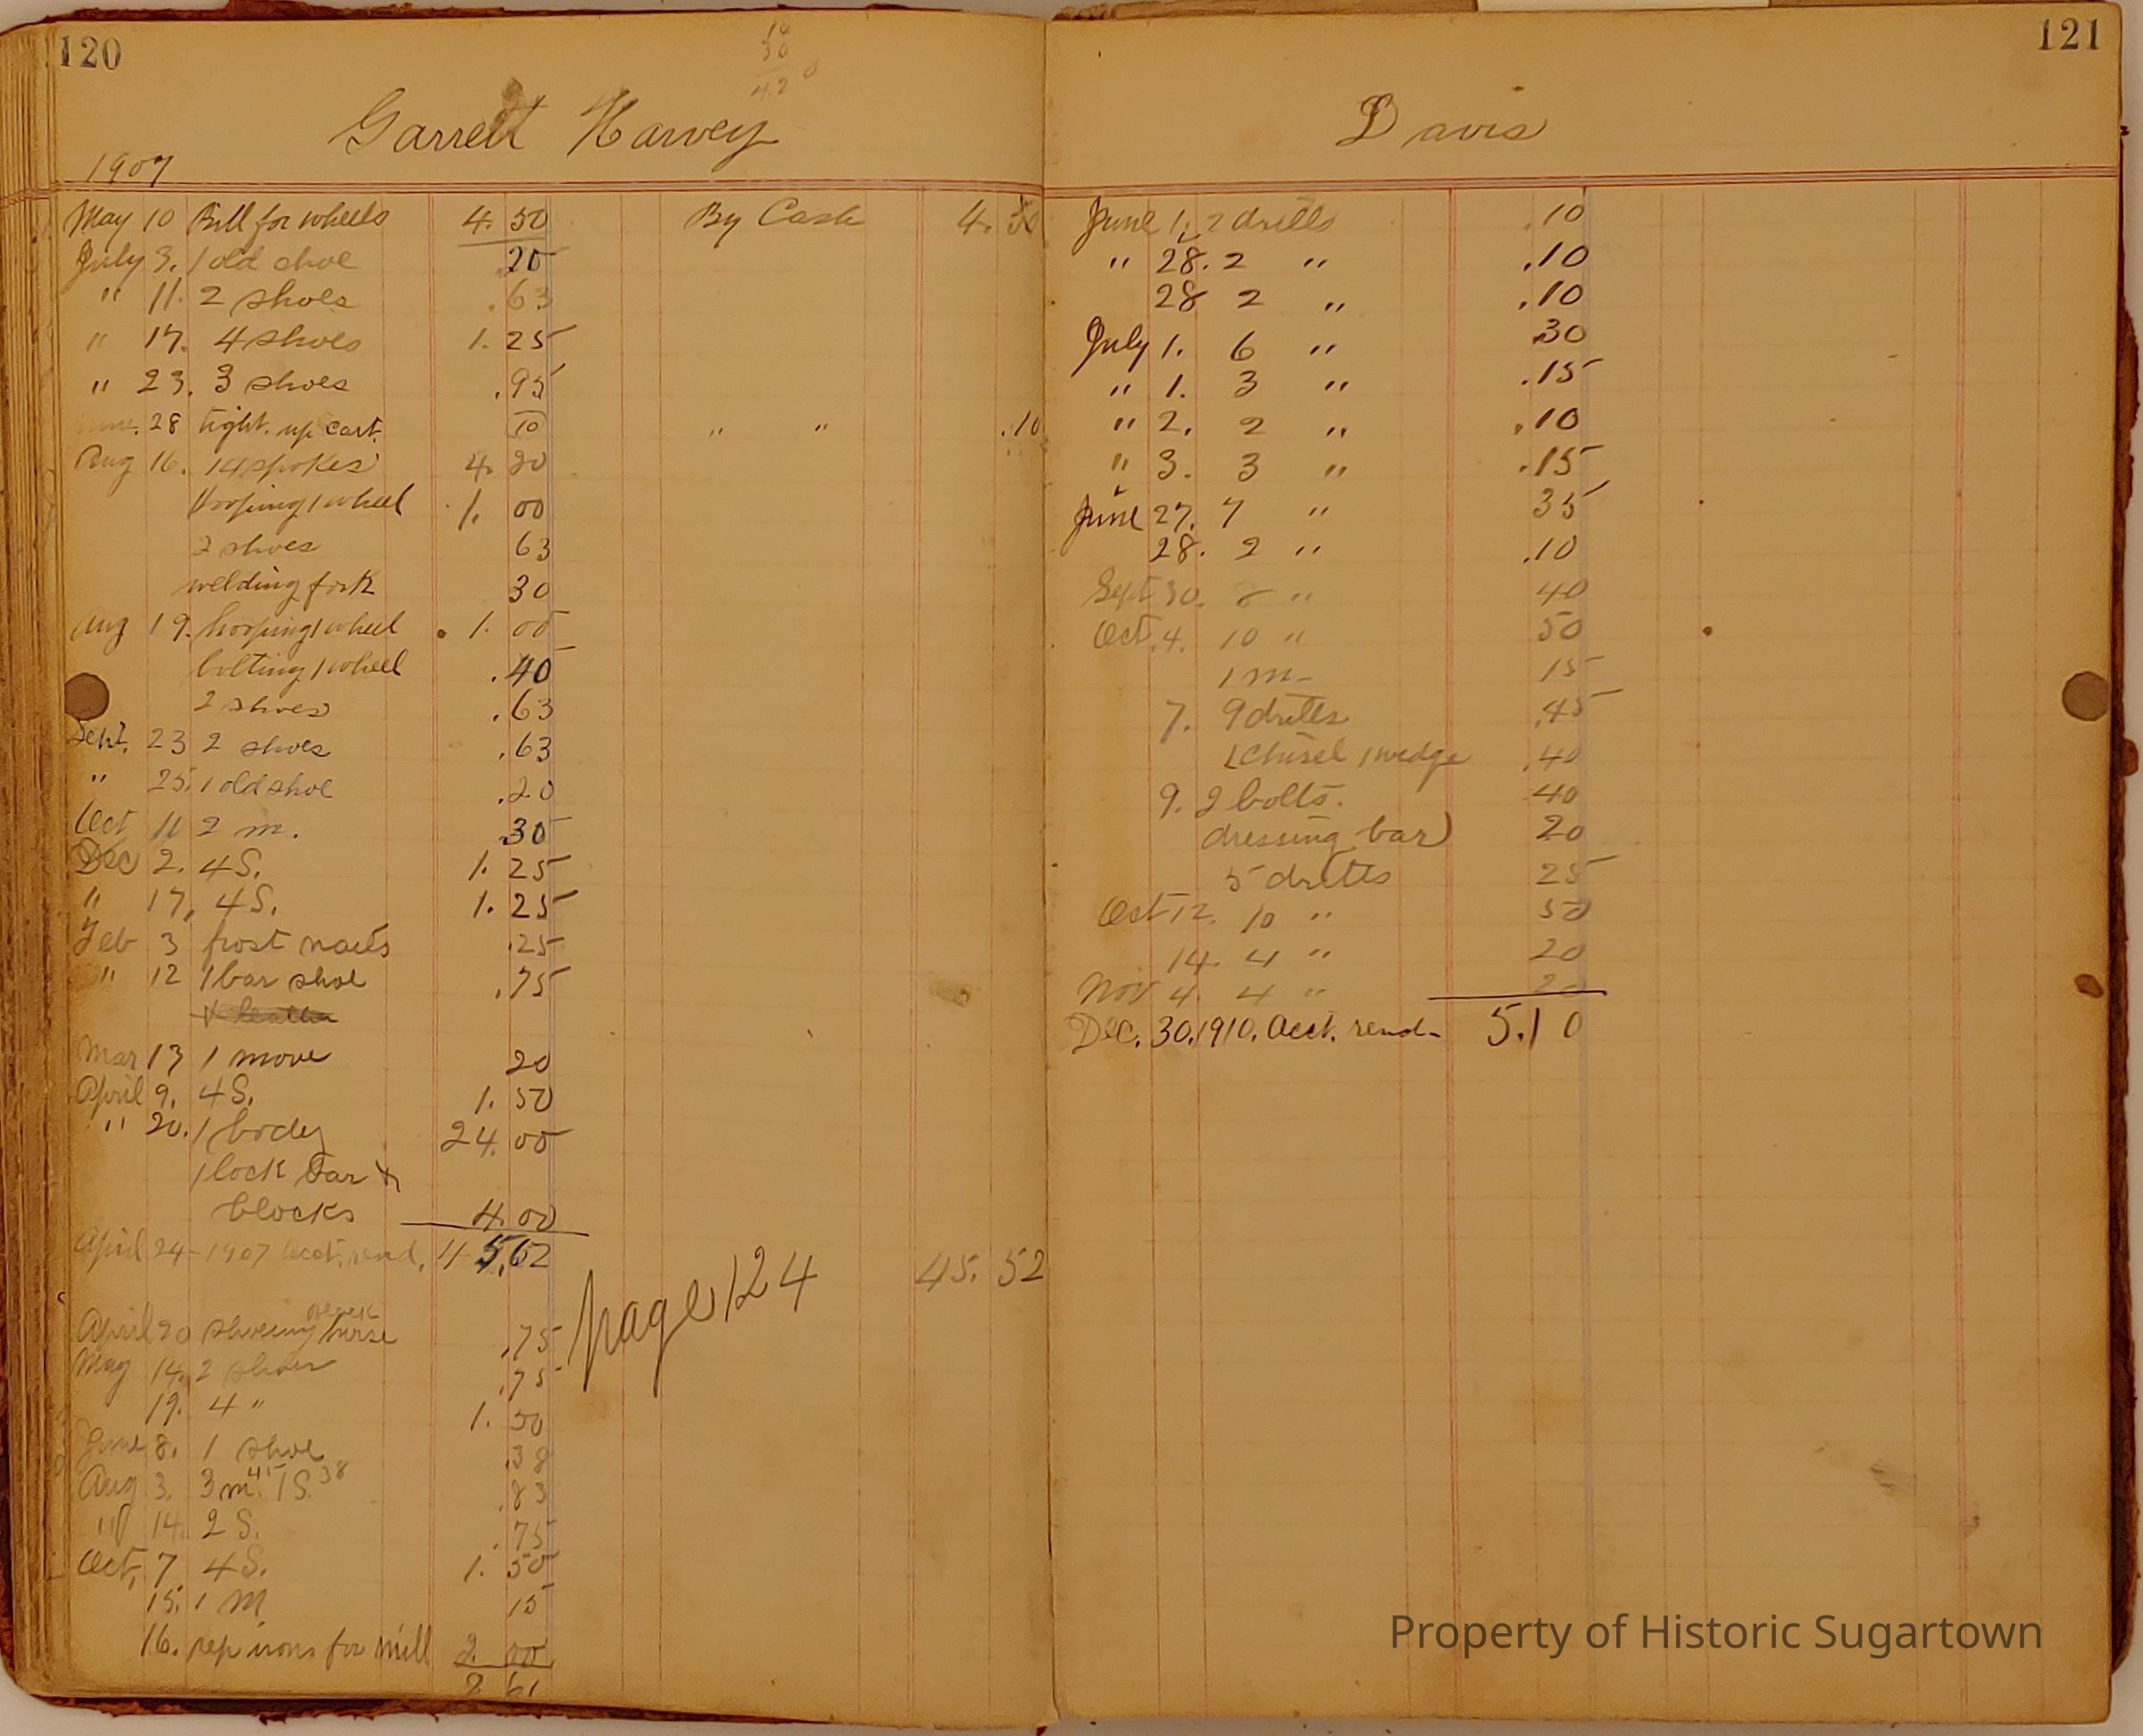 120
Garrett Harvey
1907
May 10 Bill for wheels 4. 50 By Cash 4. 50
July 3. 1 old shoe 20
" 11. 2 shoes .63
" 17. 4 shoes 1. 25
" 23. 3 shoes .95
28 tight. up cart. 10 " " .10
Aug 16. 14 spokes 4. 20
Hooping 1 wheel 1. 00
2 shoes 63
welding fork 30
Aug 19. hooping 1 wheel 1. 00
bolting 1 wheel .40
2 shoes .63
Sept. 23 2 shoes .63
" 25. 1 old shoe .20
Oct 11 2 m. .30
Dec 2. 4 S. 1. 25
" 17, 4 S. 1. 25
Feb 3 frost nails .25
" 12 1 bar shoe .75
Mar 13 1 move 20
April 9. 4 S. 1. 50
" 20. 1 body 24. 00
1 lock bar &
blocks 4. 00
April 24 - 1907 acct. rend. 45.62
page 124 45. 52
April 20 shoeing horse .75
May 14. 2 shoes .75
19. 4 " 1. 50
June 8. 1 shoe .38
Aug 3. 3 m. 45 1 S. 38 .83
" 14. 2 S. .75
Oct, 7 4 S. 1. 50
15. 1 M 15
16. rep irons for mill 2. 00
8 61
121
Davis
June 1. 2 drills .10
" 28. 2 " .10
28 2 " .10
July 1. 6 " .30
" 1. 3 " .15
" 2. 2 " .10
" 3. 3 " .15
June 27. 7 " 35
28. 2 " .10
Sept 30. 8 " 40
Oct. 4. 10 " 50
1 m- 15
7. 9 drills .45
1 chisel 1 wedge .40
9. 2 bolts. 40
dressing bar 20
5 drills 25
Oct 12. 10 " 50
14. 4 " 20
Nov 4. 4 " 20
Dec. 30. 1910. Acct. rend- 5.10
Property of Historic Sugartown